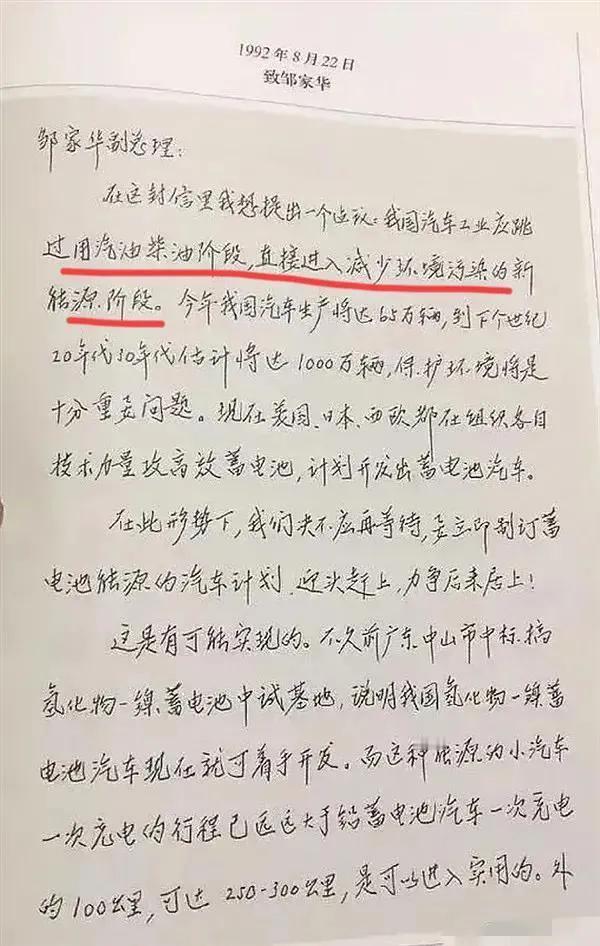 1992年8月22日
致邹家华
邹家华副总理：
在这封信里我想提出一个占议：我国汽车工业应跳
过用汽油柴油阶段，直接进入减少环境污染的新
能源阶段。今年我国汽车生产将达65万辆，到下个世纪
20年代30年代估计将达1000万辆，保护环境将是
十分重要问题。现在美国、日本、西欧都在组织各自
技术力量攻高效蓄电池，计划开发出蓄电池汽车。
在此形势下，我们决不应再等待，要立即制订蓄
电池能源的汽车计划，迎头赶上，力争后来居上！
这是有可能实现的。不久前广东中山市中标搞
氢化物－镍蓄电池中试基地，说明我国氢化物－镍蓄
电池汽车现在就可着手开发。而这种能源的小汽车
一次充电的行程已远远大于铅蓄电池汽车一次充电
的100公里，可达250-300公里，是可以进入实用的。外